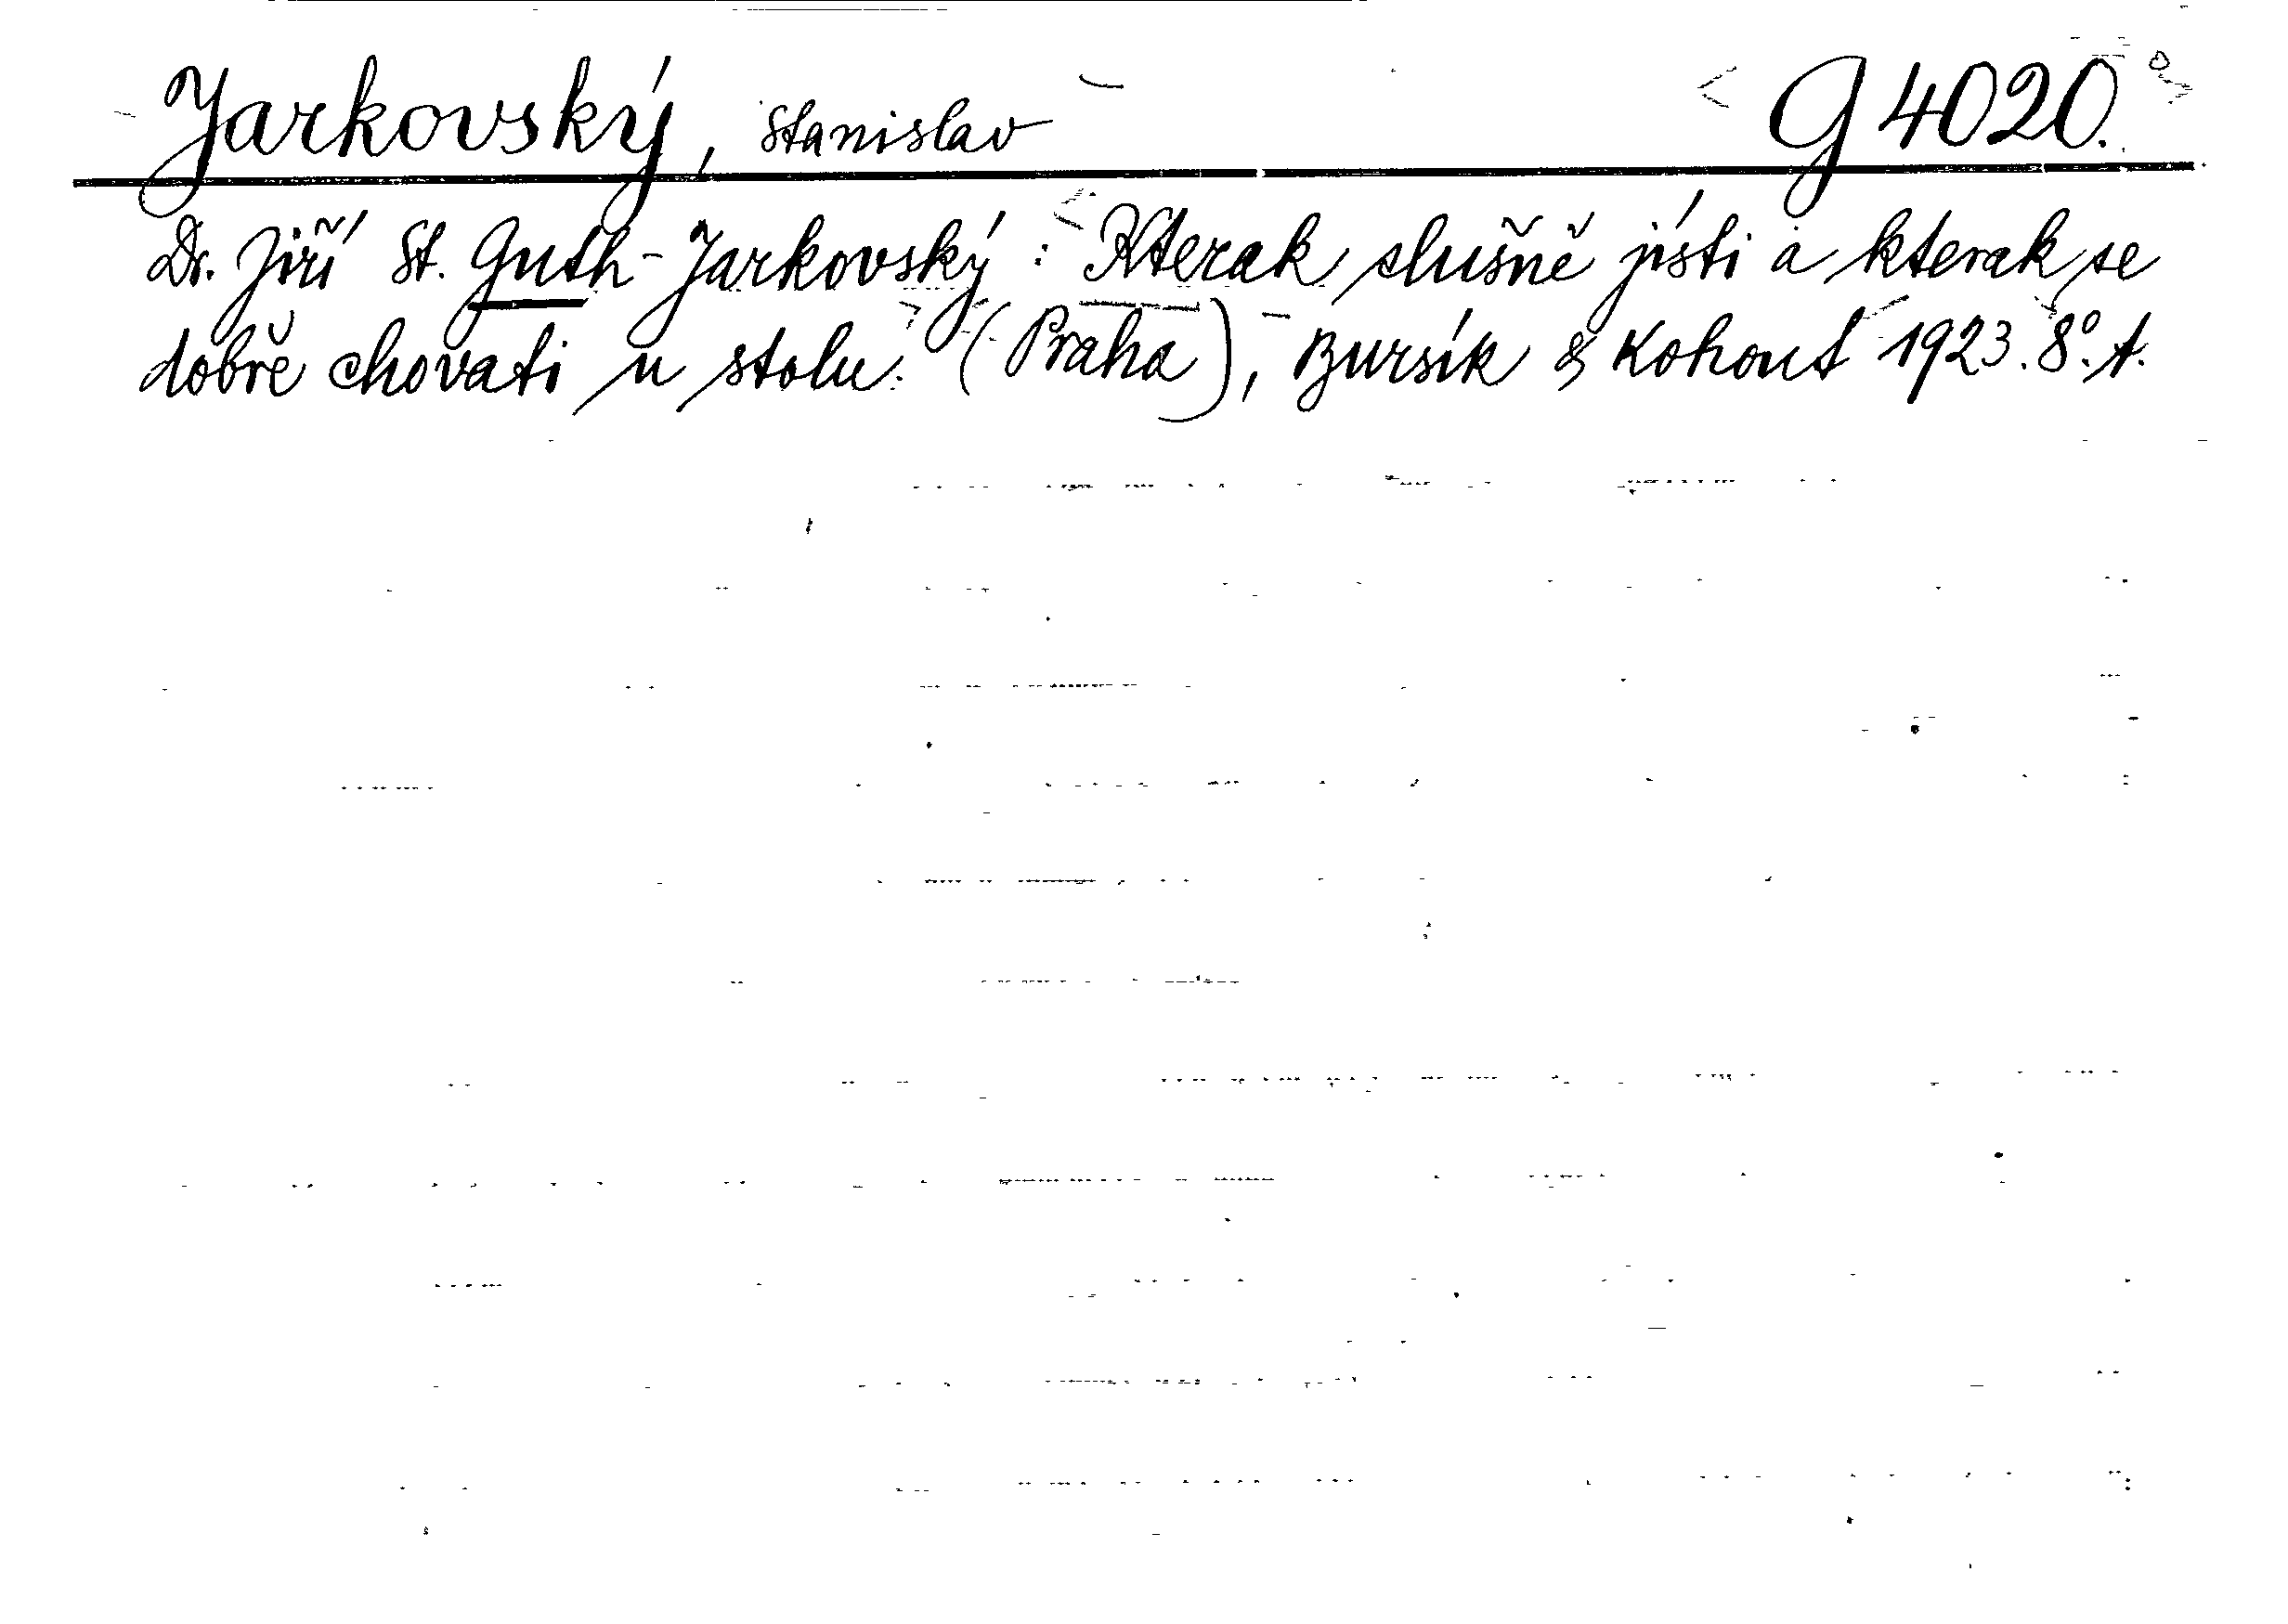 Jarkovský, Stanislav G 4020.
Dr. Jiří St. Guth-Jarkovský: Kterak slušně jísti a kterak se
dobře chovati u stolu. (Praha), Bursík & Kohout 1923. 8°. A.